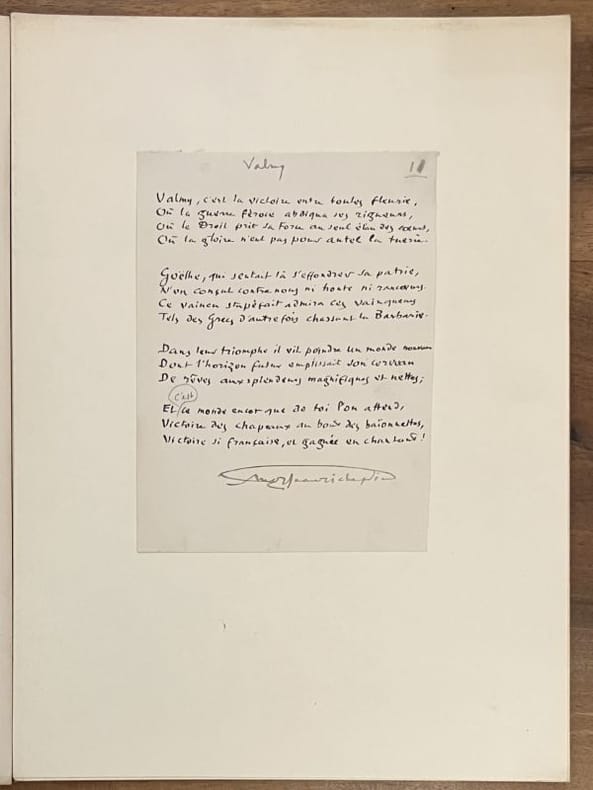 Valmy
11
Valmy, c'est la victoire entre toutes fleurie,
Où la guerre féroce abdiqua ses rigueurs,
Où le Droit prit sa force au seul élan des cœurs,
Où la gloire n'eut pas pour autel la tuerie.
Goethe, qui sentait là s'effondrer sa patrie,
N'en conçut contre nous ni honte ni rancœurs.
Ce vaincu stupéfait admira ces vainqueurs
Tels des Grecs d'autrefois chassant la Barbarie.
Dans leur triomphe il vit poindre un monde nouveau
Dont l'horizon futur emplissait son cerveau
De rêves aux splendeurs magnifiques et nettes;
c'est
Et ce monde encor que de toi l'on attend,
Victoire des chapeaux au bout des baïonnettes,
Victoire si française, et gagnée en chantant!
Jean Richepin